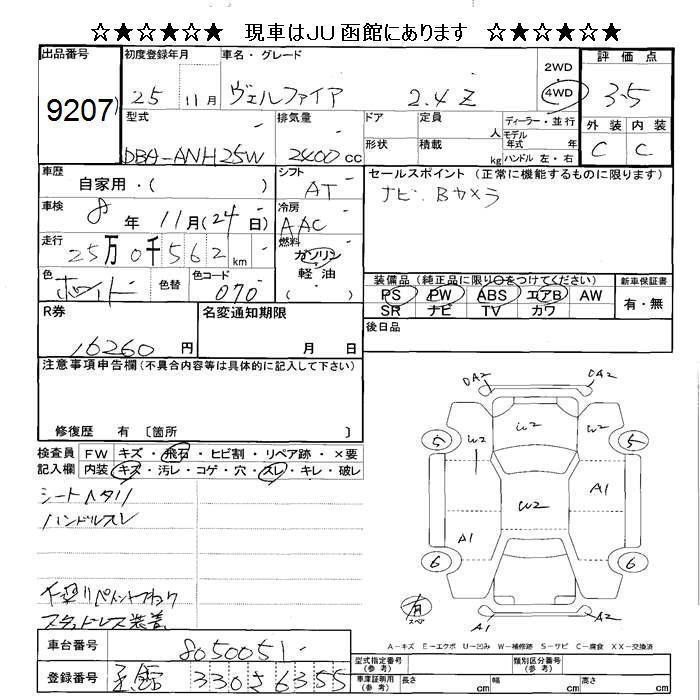 ☆★☆★☆★ 現車はJU函館にあります ☆★☆★☆★
出品番号 9207
初度登録年月 25 11月
車名・グレード ヴェルファイア 2.4Z
2WD 4WD
評価点 3.5
外装 内装
C C
型式 DBA-ANH25W
排気量 2400cc
ドア 定員 人
ディーラー・並行
モデル年式 年式
形状 積載 kg
ハンドル 左・右
車歴 自家用・( )
シフト AT
セールスポイント (正常に機能するものに限ります)
ナビ. Bカメラ
車検 8年 11月(24日)
冷房 AAC
走行 25万0千562km
燃料 ガソリン・軽油 ( )
色 ホワイト 色替 色コード 070
装備品 (純正品に限り○をつけてください)
PS PW ABS エアB AW
SR ナビ TV カワ
新車保証書 有・無
R券 16260円
名変通知期限 月 日
後日品
注意事項申告欄(不具合内容等は具体的に記入して下さい)
修復歴 有 〔箇所 〕
検査員記入欄
FW キズ・飛石・ヒビ割・リペア跡・×要
内装 キズ・汚レ・コゲ・穴・スレ・キレ・破レ
シートヘタリ
ハンドルスレ
スタッドレス装着
DA2 DA2
W2 W2 W2
5 5
W2
A1
A1
6 6
有 スペア
A1 A2
A-キズ E-エクボ U-凹み W-補修跡 S-サビ C-腐食 XX-交換済
車台番号 8050051
登録番号 函館 330さ6355
型式指定番号(参考) 類別区分番号(参考)
車庫証明用(参考) 長さ cm 幅 cm 高さ cm